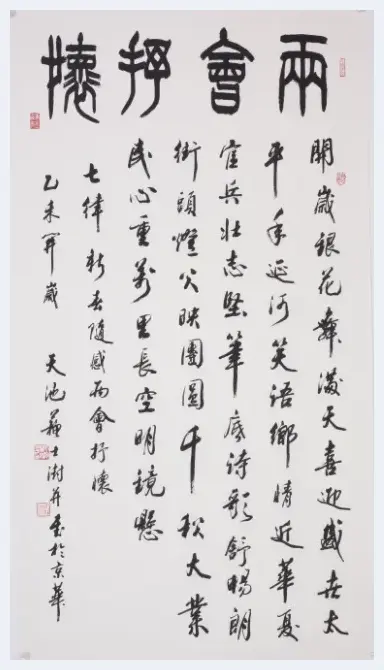 兩會抒懷
開歲銀花舞滿天喜迎盛世太
平年延河笑語鄉情近華夏
官兵壯志堅筆底詩歌舒暢朗
街頭燈火映團圓千秋大業
民心重萬里長空明鏡懸
七律新春隨感兩會抒懷
乙未開歲 天池蘇士澍並書於京華